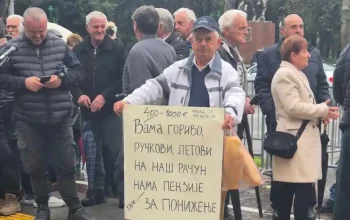 400-1000 €
Вама гориво,
ручкови, летови
на наш рачун
нама пензије
за понижење